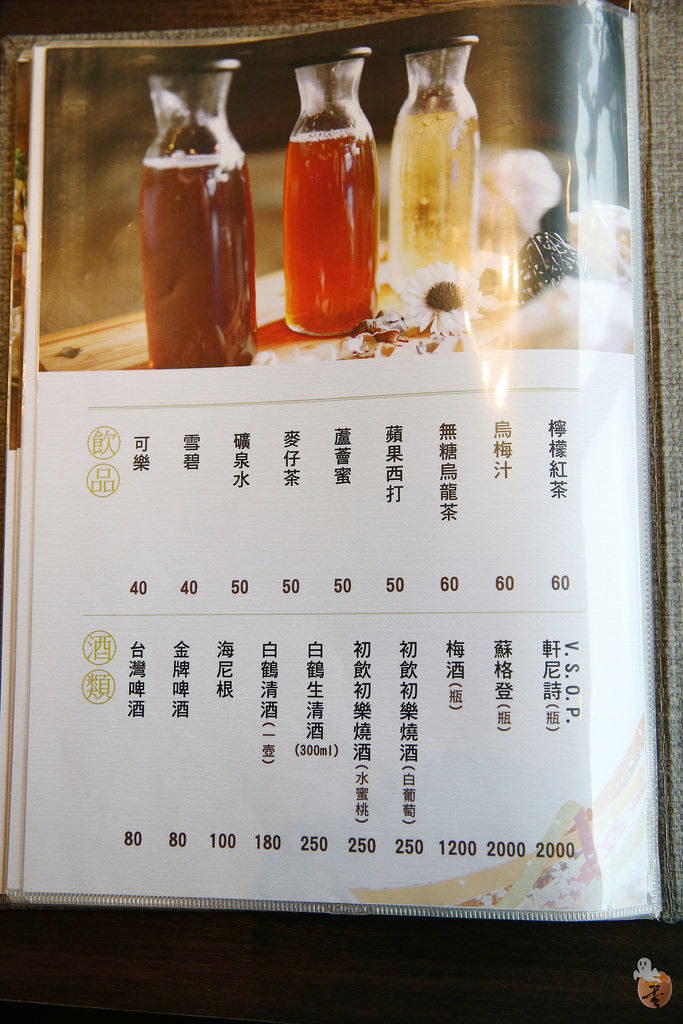 飲品
可樂 40
雪碧 40
礦泉水 50
麥仔茶 50
蘆薈蜜 50
蘋果西打 50
無糖烏龍茶 60
烏梅汁 60
檸檬紅茶 60
酒類
台灣啤酒 80
金牌啤酒 80
海尼根 100
白鶴清酒(一壺) 180
白鶴生清酒(300ml) 250
初飲初樂燒酒(水蜜桃) 250
初飲初樂燒酒(白葡萄) 250
梅酒(瓶) 1200
蘇格登(瓶) 2000
軒尼詩(瓶) V.S.O.P. 2000